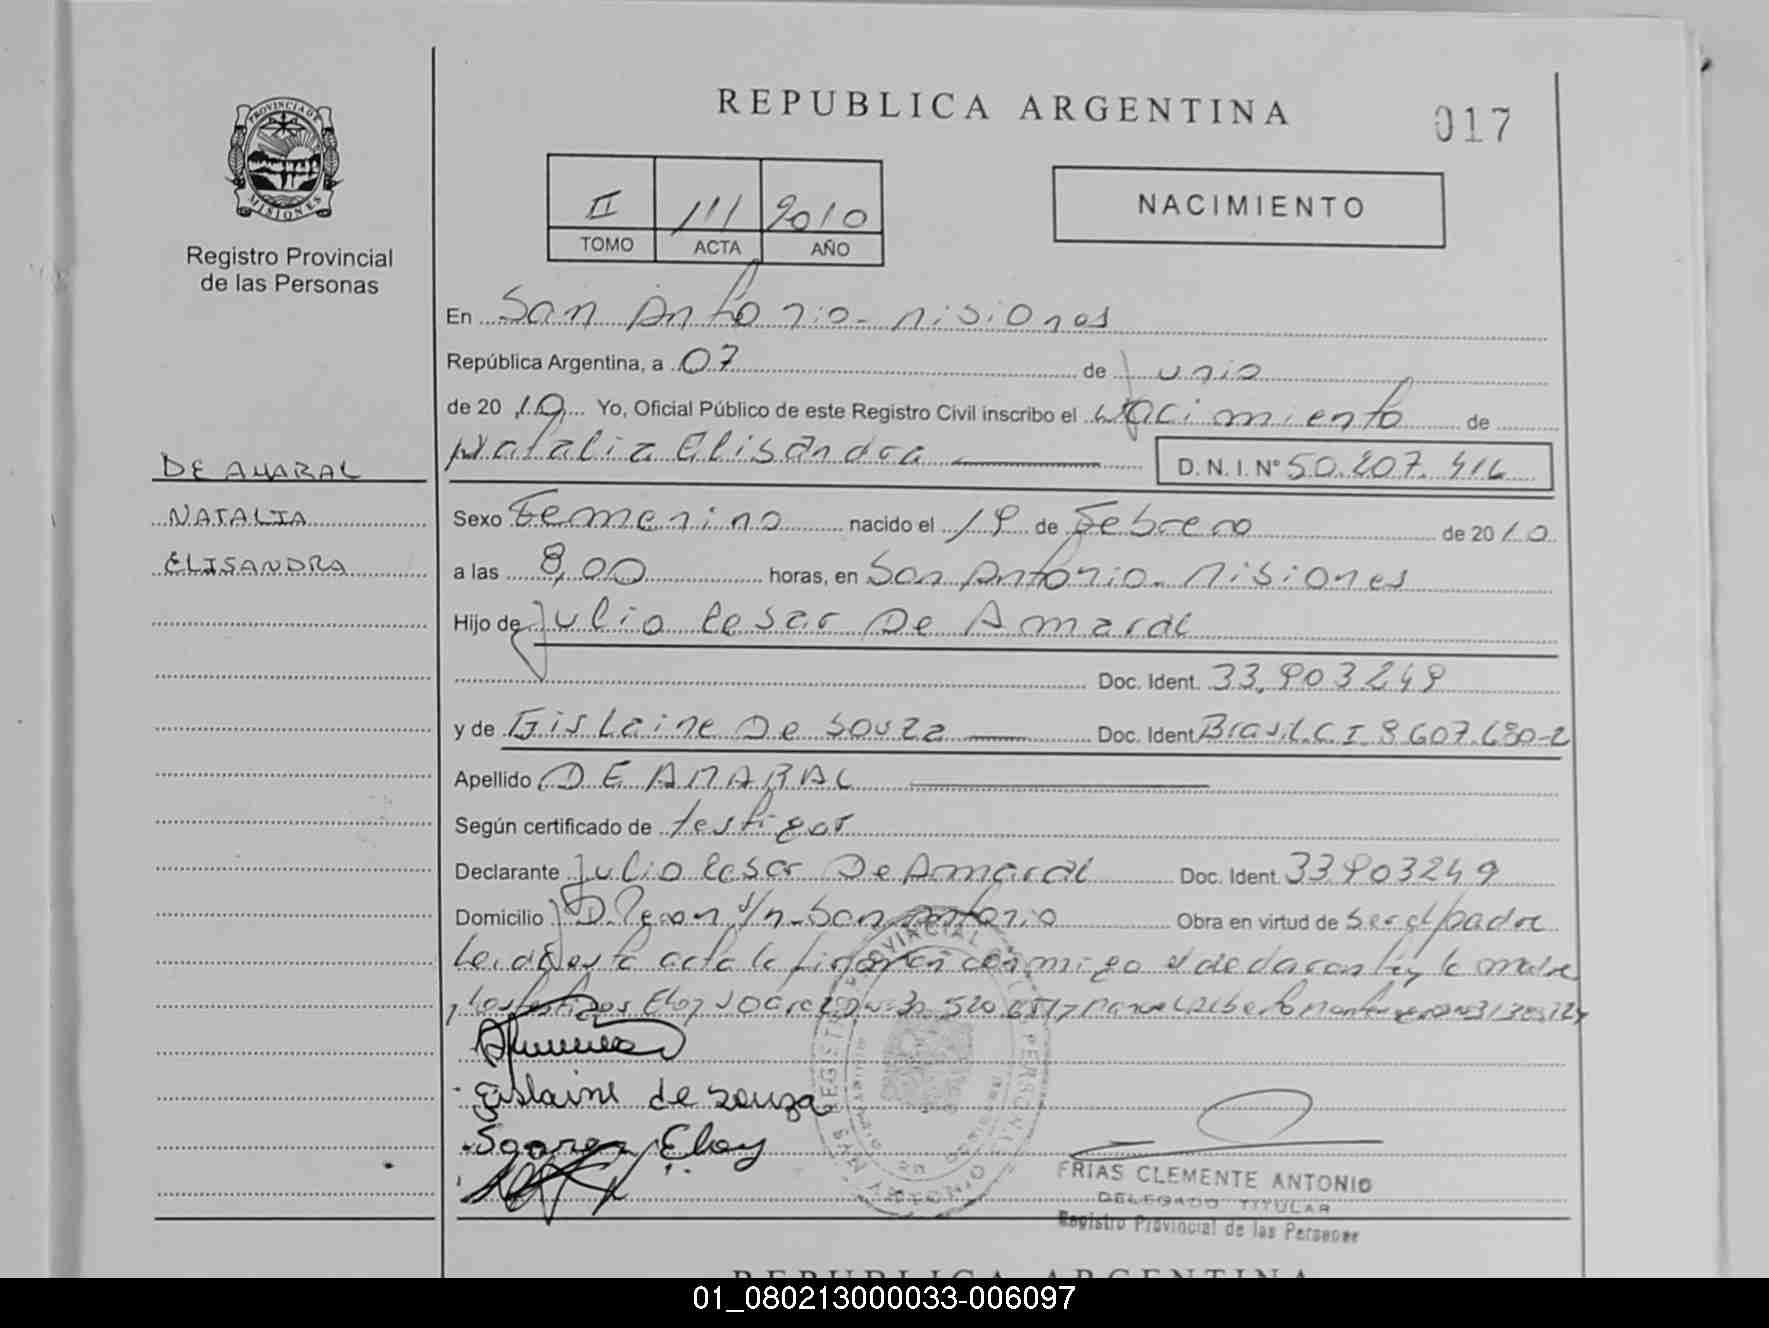 REPUBLICA ARGENTINA
017
PROVINCIA DE
MISIONES
Registro Provincial
de las Personas
II 111 2010
TOMO ACTA AÑO
NACIMIENTO
En San Antonio - Misiones
República Argentina, a 07 de Junio
de 20 10 Yo, Oficial Público de este Registro Civil inscribo el Nacimiento de
Natalia Elisandra D. N. I. N° 50.207.414
DE AMARAL
NATALIA
ELISANDRA
Sexo Femenino nacido el 19 de Febrero de 2010
a las 8,00 horas, en San Antonio - Misiones
Hijo de Julio Cesar De Amaral
Doc. Ident. 33.903249
y de Gislaine De Souza Doc. Ident Brasil. C I. 9.607.680-2
Apellido DE AMARAL
Según certificado de testigos
Declarante Julio Cesar De Amaral Doc. Ident. 33903249
Domicilio J D. Peron s/n - San Antonio Obra en virtud de Ser el padre
Leida esta acta la firman conmigo el declarante y la madre
y los testigos Eloy Soarez
Gislaine de Souza
Soarez Eloy
FRIAS CLEMENTE ANTONIO
DELEGADO TITULAR
Registro Provincial de las Personas
REPUBLICA ARGENTINA
01_080213000033-006097